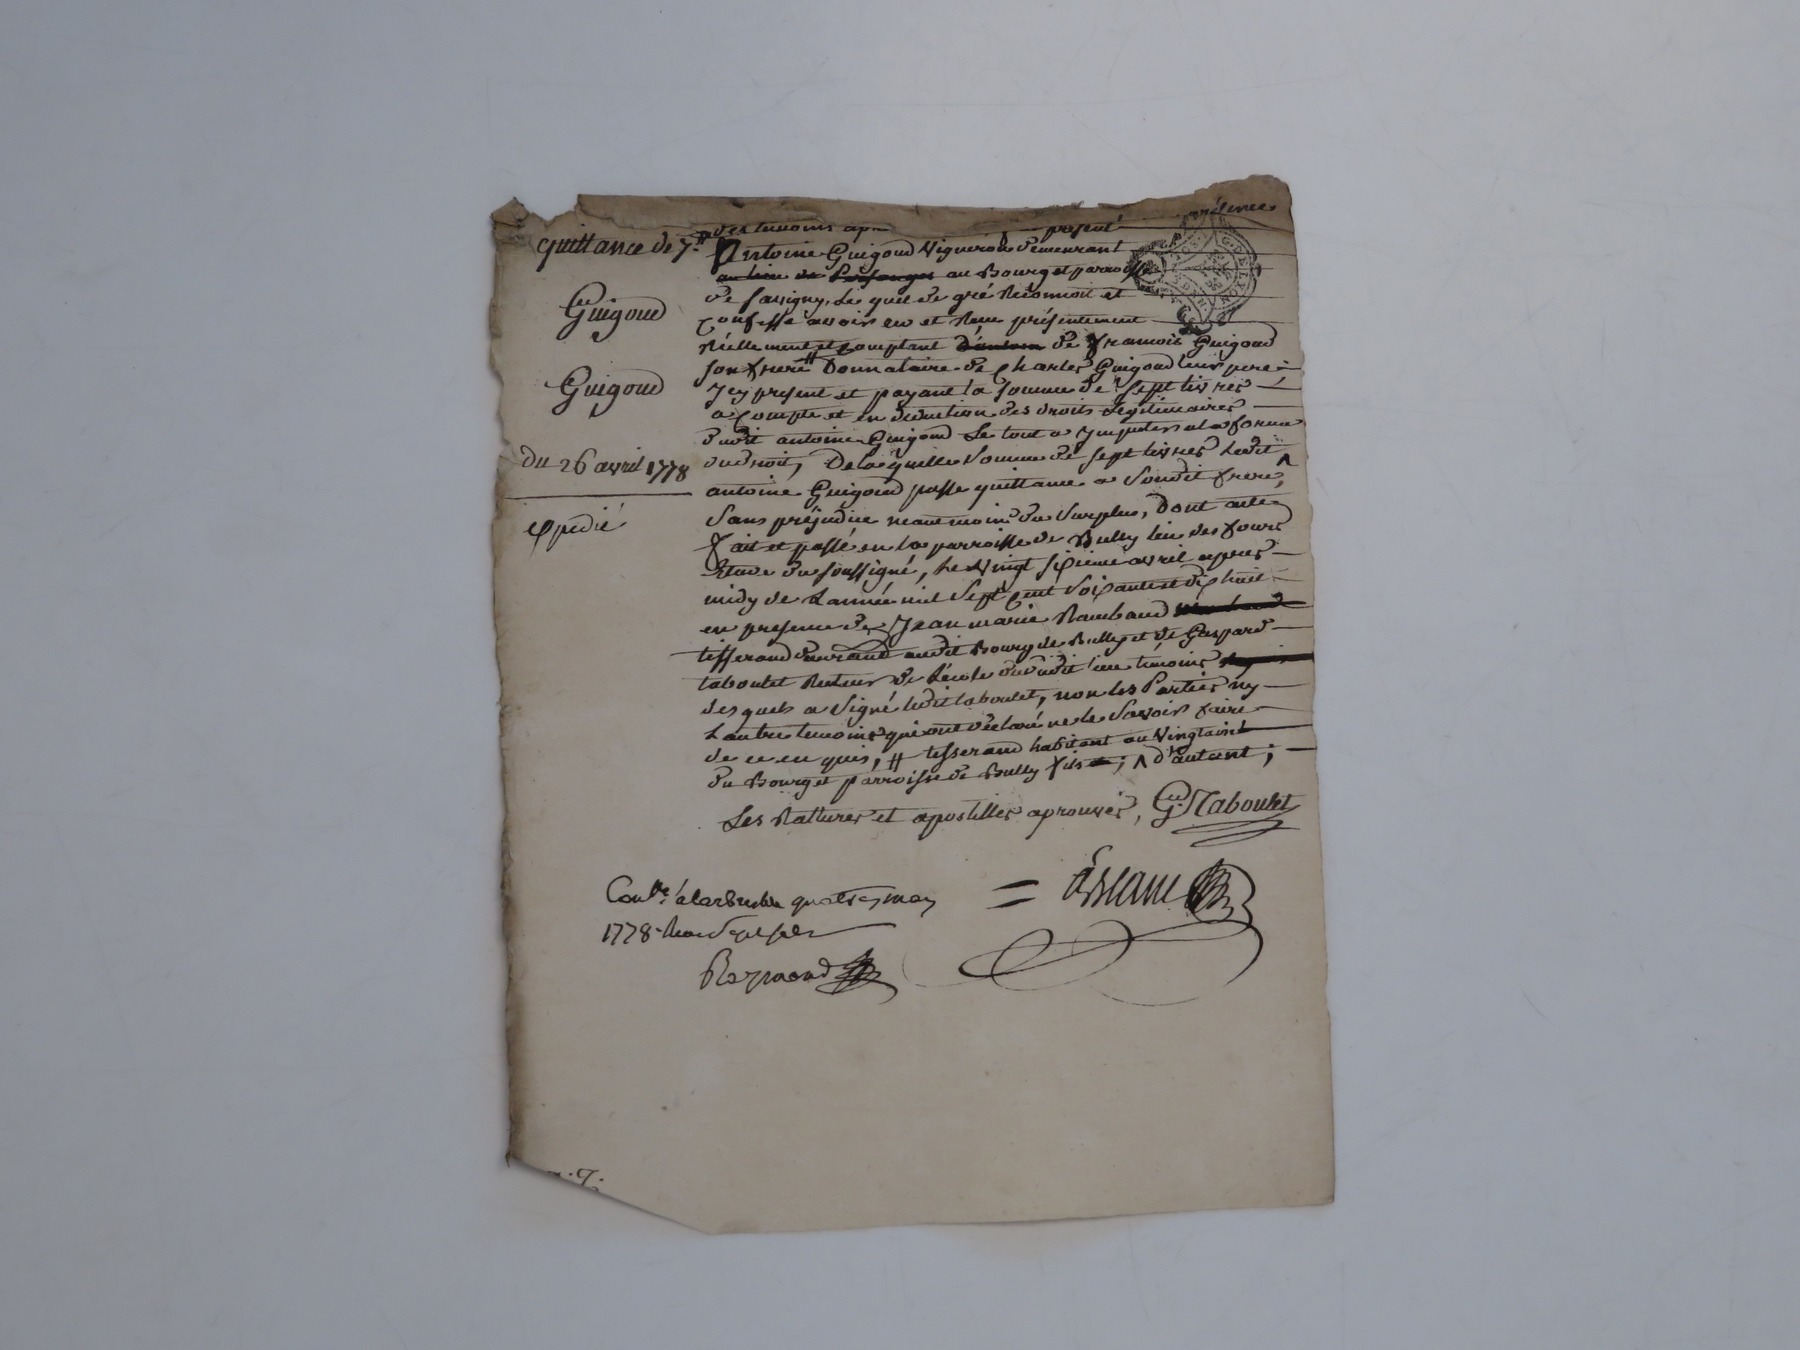 des temoins
présent
quittance de 7.#
Antoine Guigoud Vigneron demeurant
au lieu de au Bourg et parroisse
Guigoud
de Savigny, Le quel de gré Reconnoit et
confesse avoir eu et Reçu présentement
Réellement et comptant de francois Guigoud
son frere # Donnataire de Charles Guigoud leur pere
Guigoud
Icy présent et payant la somme de sept livres
a compte et en deduction des droits Legitimaires
dudit antoine Guigoud Le tout a Imputer a la forme
du droit, De laquelle somme de sept livres Ledit ^
du 26 avril 1778
antoine Guigoud passe quittance a Sondit frere,
Sans préjudice neantmoins du Surplus, Dont acte
expédié
fait et passé en la parroisse de Bully lieu des fours
Etude du soussigné, Le Vingt sixieme avril apres
midy de L'année mil Sept Cent Soixante et dix huit
en presence de Jean marie Rambaud
tisserand demeurant audit Bourg de Bully et de Gaspard
taboulet Recteur de L'école dudit lieu témoins
desquels a Signé ledit taboulet, non les Parties ny
L'autre temoins qui ont déclaré ne le Savoir faire
de ce enquis, # tisserand habitant au Vingtain
du Bourg et parroisse de Bully fils ; ^ d'autant ;
Les Ratures et apostilles aprouvés, G. Taboulet
Conlle. à larbresle quatre may
1778. Recu Sept sols
Raymond